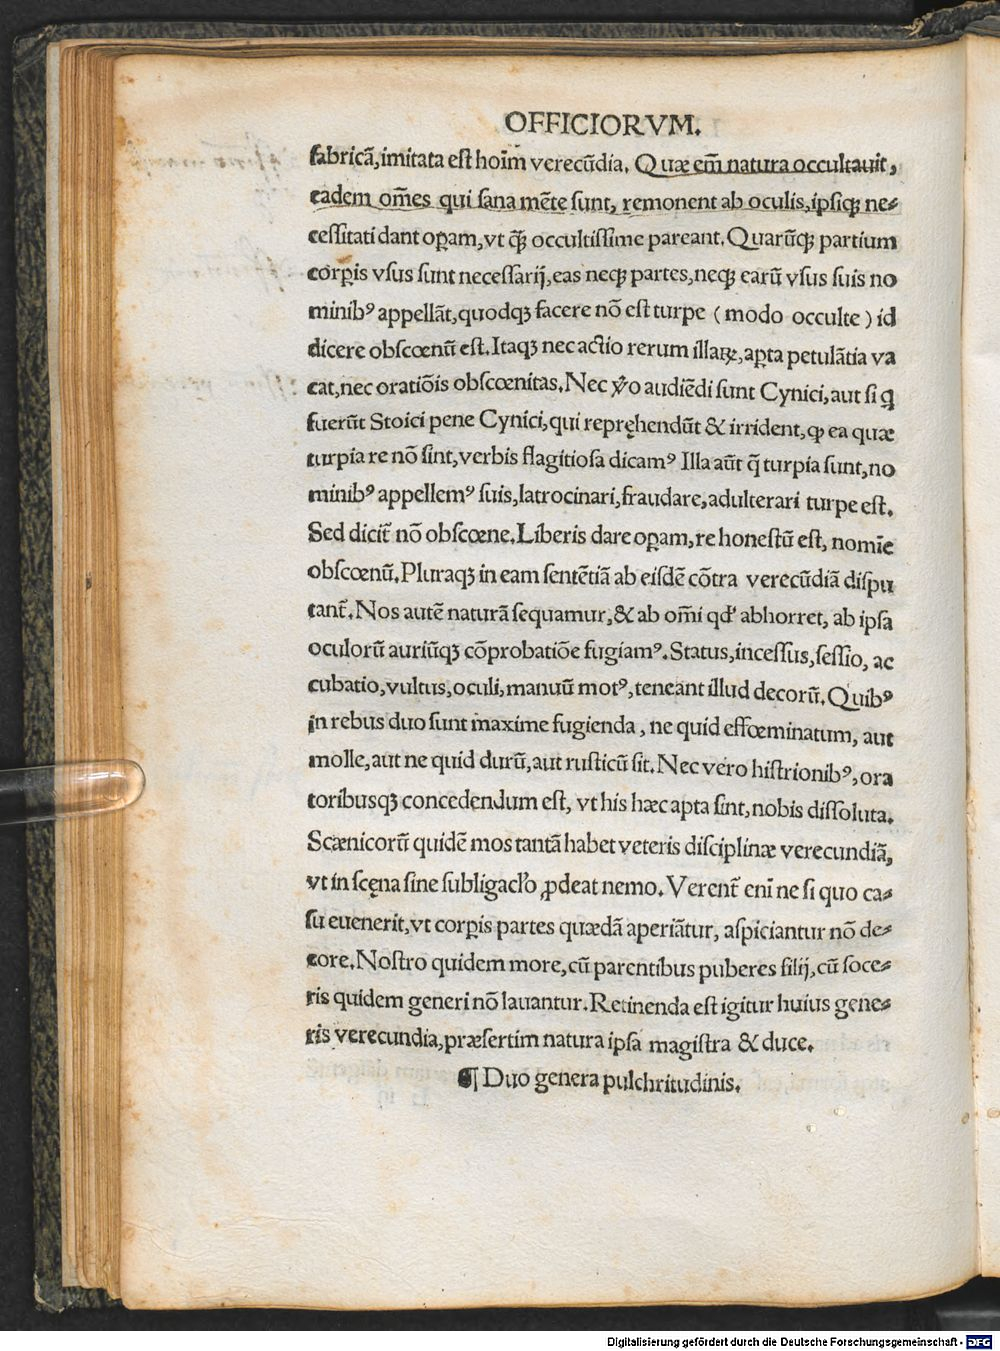 OFFICIORVM.
fabricã, imitata est hoĩm verecũdia. Quæ em̃ natura occultauit,
eadem om̃es qui sana mẽte sunt, remouent ab oculis, ipsiqꝫ ne-
cessitati dant oꝑam, vt q̃ꝫ occultissime pareant. Quarũqꝫ partium
corꝑis vsus sunt necessarij, eas neqꝫ partes, neqꝫ earũ vsus suis no
minibꝰ appellãt, quodqꝫ facere nõ est turpe (modo occulte) id
dicere obscœnũ est. Itaqꝫ nec actio rerum illaꝝ, aꝑta petulãtia va
cat, nec oratiõis obscœnitas. Nec ꝟo audiẽdi sunt Cynici, aut si q
fuerũt Stoici pene Cynici, qui repręhendũt & irrident, ꝙ ea quæ
turpia re nõ sint, verbis flagitiosa dicamꝰ Illa aũt q̃ turpia sunt, no
minibꝰ appellemꝰ suis, latrocinari, fraudare, adulterari turpe est.
Sed dicit̃ nõ obscœne. Liberis dare oꝑam, re honestũ est, nomĩe
obscœnũ. Pluraqꝫ in eam sentẽtiã ab eisdẽ cõtra verecũdiã dispu
tant̃. Nos autẽ naturã sequamur, & ab om̃i qd' abhorret, ab ipsa
oculorũ auriũqꝫ cõprobatiõe fugiamꝰ. Status, incessus, sessio, ac
cubatio, vultus, oculi, manuũ motꝰ, teneant illud decorũ. Quibꝰ
in rebus duo sunt maxime fugienda, ne quid effœminatum, aut
molle, aut ne quid durũ, aut rusticũ sit. Nec vero histrionibꝰ, ora
toribusqꝫ concedendum est, vt his hæc apta sint, nobis dissoluta.
Scænicorũ quidẽ mos tantã habet veteris disciplinæ verecundiã,
vt in scęna sine subligacl'o ꝓdeat nemo. Verent̃ eni ne si quo ca-
su euenerit, vt corꝑis partes quædã aperiãtur, aspiciantur nõ de-
core. Nostro quidem more, cũ parentibus puberes filij, cũ soce-
ris quidem generi nõ lauantur. Retinenda est igitur huius gene-
ris verecundia, præsertim natura ipsa magistra & duce.
¶ Duo genera pulchritudinis.
Digitalisierung gefördert durch die Deutsche Forschungsgemeinschaft - DFG